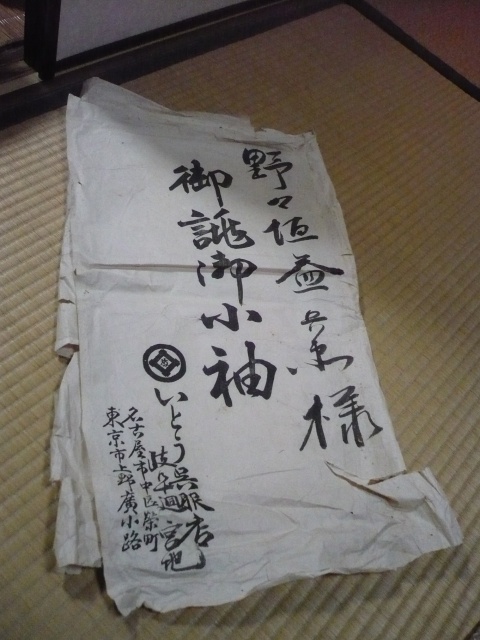 野々垣益兵衛様
御誂御小袖
いとう呉服店
名古屋市中区榮町
東京市上野廣小路